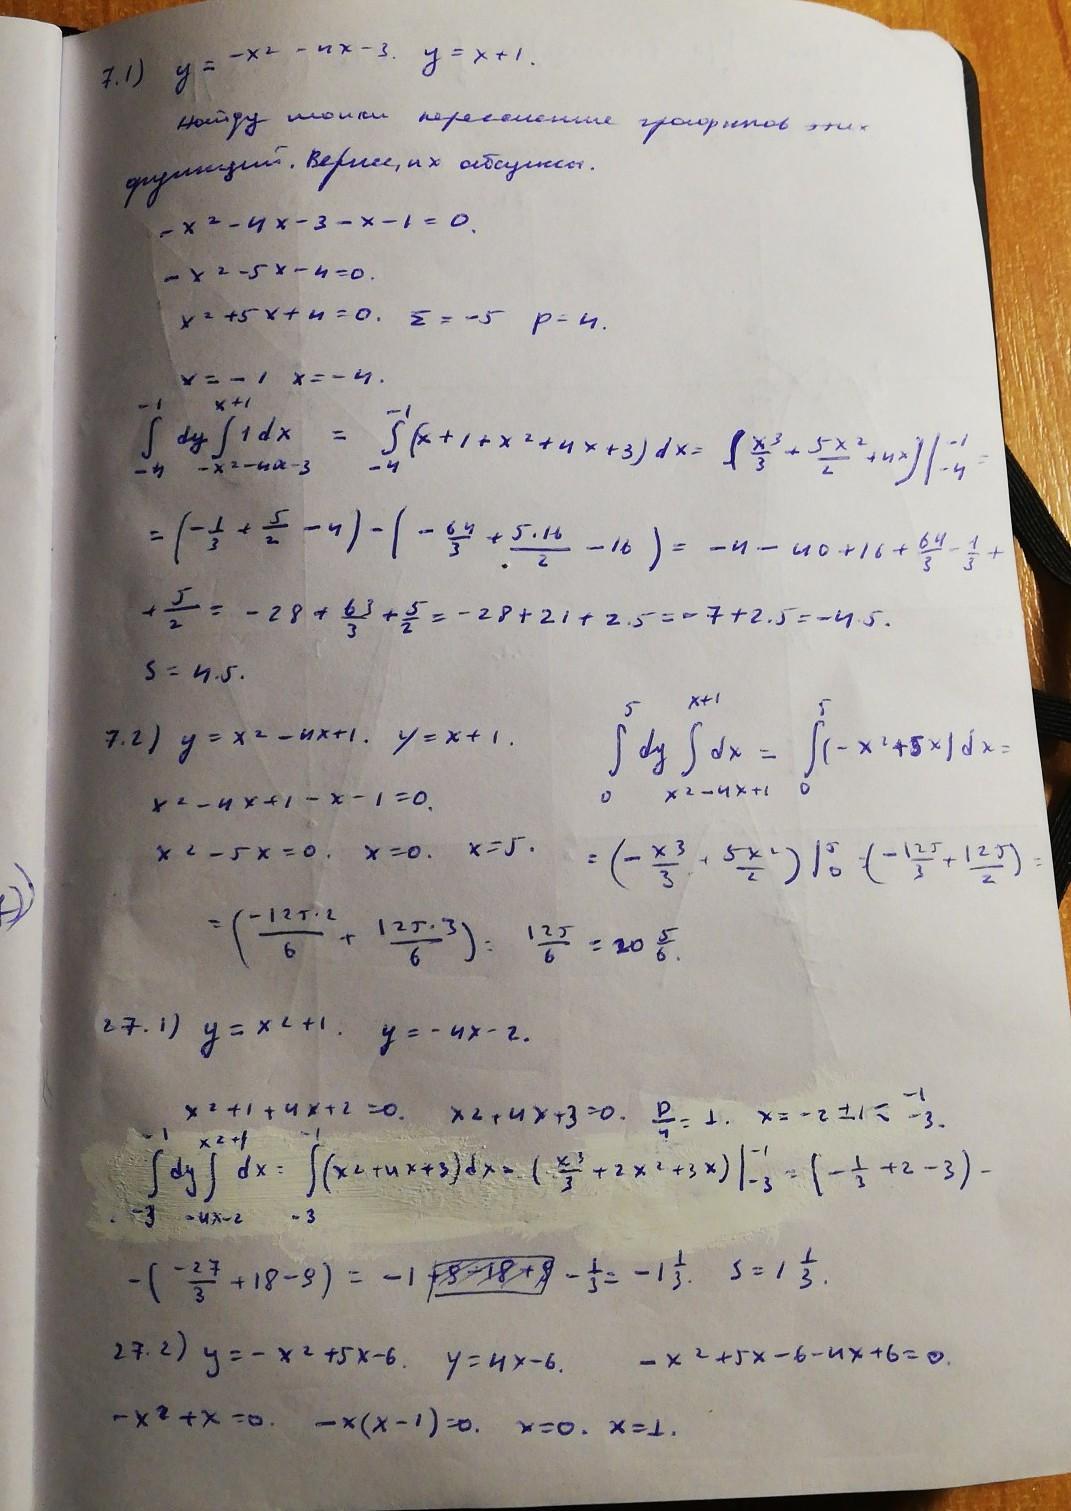 7.1) y = -x² - 4x - 3. y = x + 1.
Найду точки пересечение графиков этих
функций. Вернее, их абсциссы.
-x² - 4x - 3 - x - 1 = 0.
-x² - 5x - 4 = 0.
x² + 5x + 4 = 0. Σ = -5 p = 4.
x = -1 x = -4.
∫_{-4}^{-1} dy ∫_{-x²-4x-3}^{x+1} 1 dx = ∫_{-4}^{-1} (x + 1 + x² + 4x + 3) dx = [x³/3 + 5x²/2 + 4x] |_{-4}^{-1} =
= (-1/3 + 5/2 - 4) - (-64/3 + 5·16/2 - 16) = -4 - 40 + 16 + 64/3 - 1/3 +
+ 5/2 = -28 + 63/3 + 5/2 = -28 + 21 + 2.5 = -7 + 2.5 = -4.5.
S = 4.5.
7.2) y = x² - 4x + 1. y = x + 1.
x² - 4x + 1 - x - 1 = 0.
x² - 5x = 0. x = 0. x = 5.
∫_{0}^{5} dy ∫_{x²-4x+1}^{x+1} dx = ∫_{0}^{5} (-x² + 5x) dx =
= (-x³/3 + 5x²/2) |_{0}^{5} = (-125/3 + 125/2) =
= (-125·2/6 + 125·3/6) = 125/6 = 20 5/6.
27.1) y = x² + 1. y = -4x - 2.
x² + 1 + 4x + 2 = 0. x² + 4x + 3 = 0. D/4 = 1. x = -2 ± 1 = -1 -3.
∫_{-3}^{-1} dy ∫_{-4x-2}^{x²+1} dx = ∫_{-3}^{-1} (x² + 4x + 3) dx = (x³/3 + 2x² + 3x) |_{-3}^{-1} = (-1/3 + 2 - 3) -
-(-27/3 + 18 - 9) = -1 - 1/3 = -1 1/3. S = 1 1/3.
27.2) y = -x² + 5x - 6. y = 4x - 6. -x² + 5x - 6 - 4x + 6 = 0.
-x² + x = 0. -x(x - 1) = 0. x = 0. x = 1.